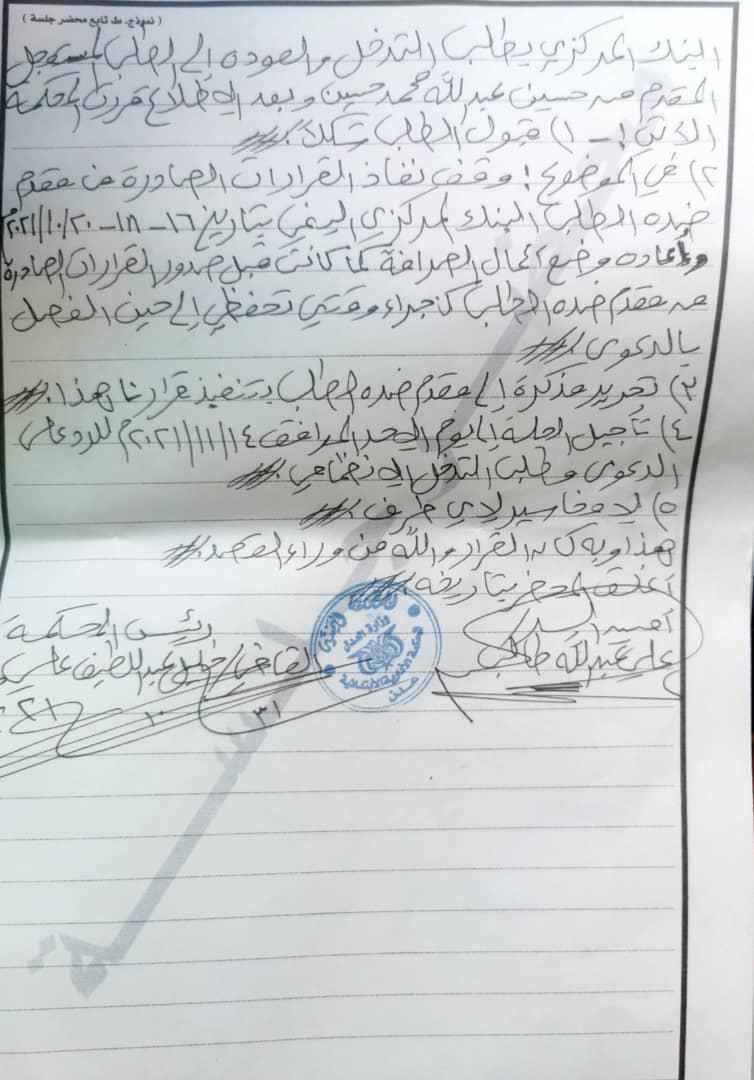 ( نموذج. ط. تابع محضر جلسة )
البنك المركزي بطلب التدخل والعوده الى الطلب المستعجل
المقدم من حسين عبدالله محمد حسين وبعد الإطلاع قررت المحكمة
الآتي : - ١) قبول الطلب شكلاً .
٢) في الموضوع : وقف نفاذ القرارات الصادرة من مقدم
ضده الطلب البنك المركزي اليمني بتاريخ ١٦ - ١٨ - ٢٠/١٠/٢٠٢١م
وإعاده وضع اعمال الصرافة كما كانت قبل صدور القرارات الصادرة
من مقدم ضده الطلب كإجراء وقتي تحفظي إلى حين الفصل
بالدعوى .
٣) تحرير مذكرة إلى مقدم ضده الطلب بتنفيذ قرارنا هذا .
٤) تأجيل الجلسة إلى يوم الاحد الموافق ١٤/١١/٢٠٢١م للرد على
الدعوى وطلب التدخل الإنضمامي .
٥) لا مفاسير لاي طرف .
هذا وبه كان القرار والله من وراء القصد .
أغلق المحضر بتاريخه .
أمين السر
رئيس المحكمة
علي عبدالله طالب
القاضي / عبداللطيف علي
وزارة العدل
عدن
٣١
١٠
محضر جلسة